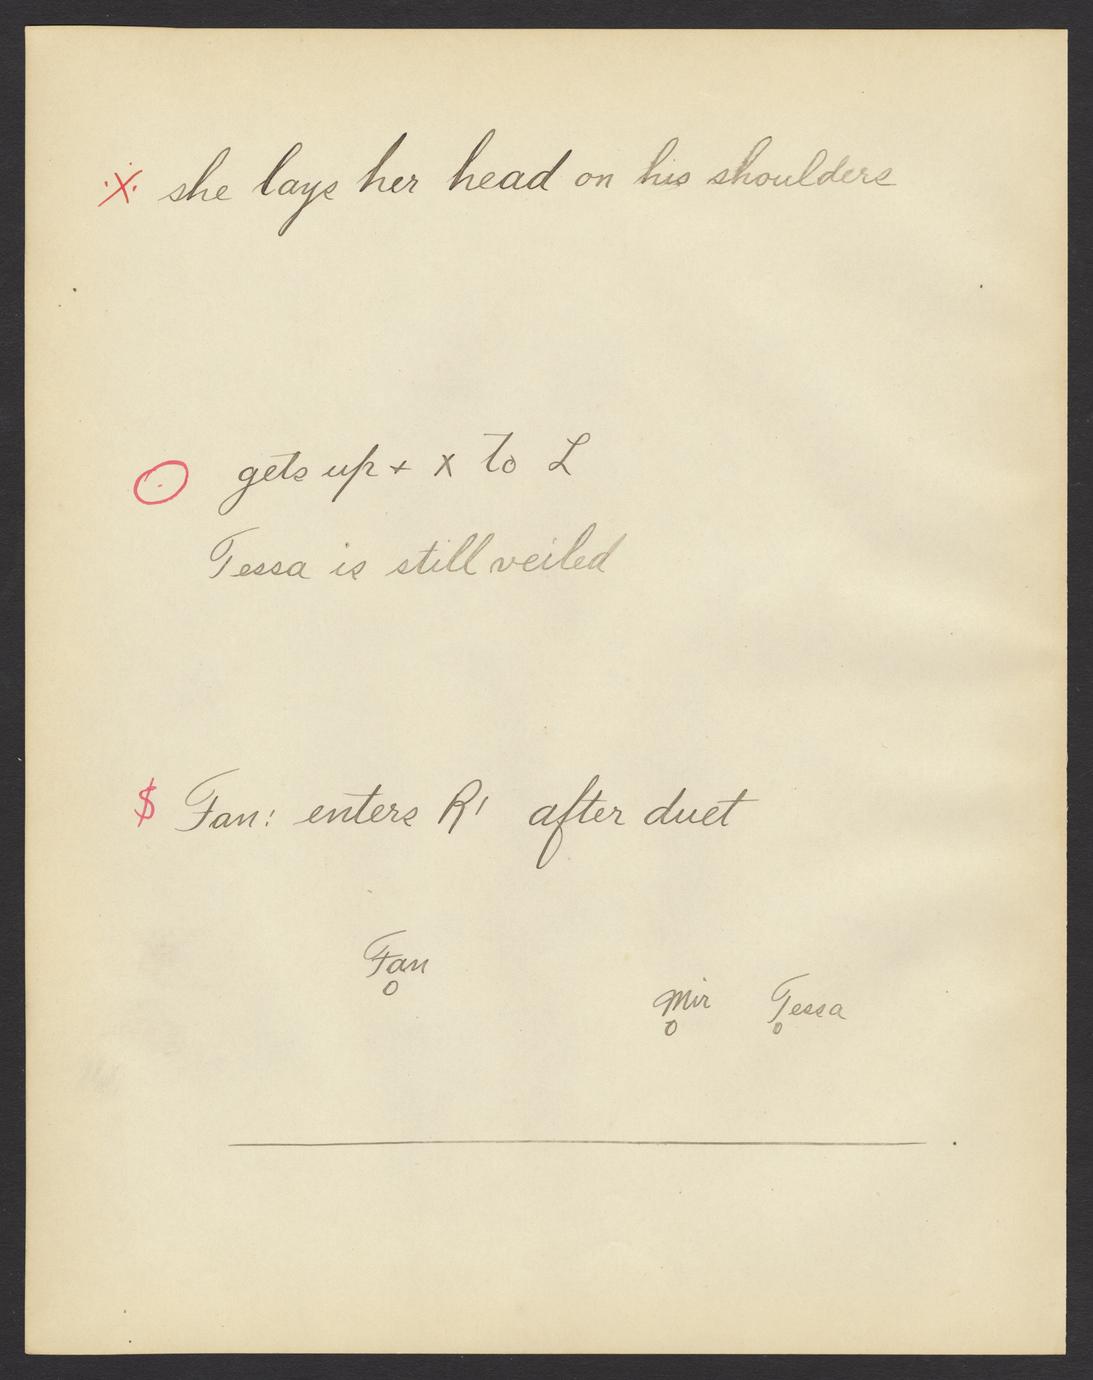 ·X· she lays her head on his shoulders
⊙ gets up + x to L
Tessa is still veiled
$ Fan: enters R' after duet
Fan
o
Mir Tessa
o o